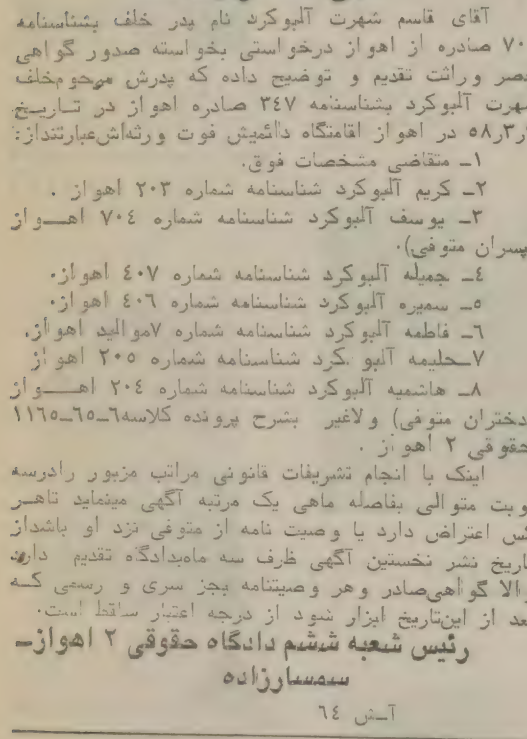 آقای قاسم شهرت آلبوکرد نام پدر خلف بشناسنامه
۷۰۰ صادره از اهواز درخواستی بخواسته صدور گواهی
حصر وراثت تقدیم و توضیح داده که پدرش مرحوم خلف
شهرت آلبوکرد بشناسنامه ۳٤۷ صادره اهواز در تاریخ
ر۳ر۵۸ در اهواز اقامتگاه دائمیش فوت ورثه‌اش عبارتنداز:
۱ـ متقاضی مشخصات فوق.
۲ـ کریم آلبوکرد شناسنامه شماره ۲۰۳ اهواز .
۳ـ یوسف آلبوکرد شناسنامه شماره ۷۰٤ اهـــواز
پسران متوفی).
٤ـ جمیله آلبوکرد شناسنامه شماره ٤۰۷ اهواز.
۵ـ سمیره آلبوکرد شناسنامه شماره ٤۰٦ اهواز.
٦ـ فاطمه آلبوکرد شناسنامه شماره ۷موالید اهواز.
۷ـحلیمه آلبو کرد شناسنامه شماره ۲۰۵ اهواز
۸ـ هاشمیه آلبوکرد شناسنامه شماره ۲۰٤ اهـــواز
دختران متوفی) ولاغیر بشرح پرونده کلاسه٦ـ٦۵ـ۱۱٦۵
حقوقی ۲ اهواز .
اینک با انجام تشریفات قانونی مراتب مزبور رادرسه
نوبت متوالی بفاصله ماهی یک مرتبه آگهی مینماید تاهـر
کس اعتراض دارد یا وصیت نامه از متوفی نزد او باشداز
تاریخ نشر نخستین آگهی ظرف سه ماه‌بدادگاه تقدیم دارد
والا گواهی‌صادر وهر وصیتنامه بجز سری و رسمی کـه
بعد از این‌تاریخ ابراز شود از درجه اعتبار ساقط است.
رئیس شعبه ششم دادگاه حقوقی ۲ اهواز ـ
سمسارزاده
آـش ٦٤